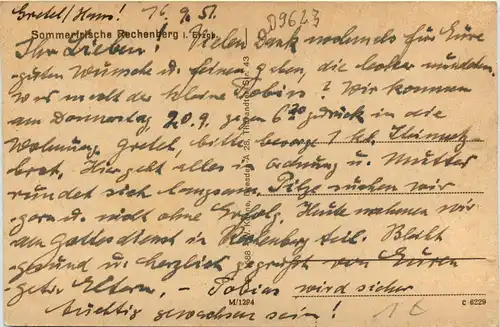 Gretel/Hans! 16.9.51.
D9623
Sommerfrische Rechenberg i. Erzgeb.
Ihr Lieben! Vielen Dank nochmals für Eure
guten Wünsche u. feinen Gaben, die lecker munden.
Was macht der kleine Tobias? Wir kommen
am Donnerstag, 20.9. gegen 6³⁰ zurück in die
Wohnung. Gretel, bitte besorge 1 kl.
brot. Hier geht alles in Ordnung u. Mutter
rundet sich langsam. Pilze suchen wir
gern u. nicht ohne Erfolg. Heute nahmen wir
am Gottesdienst in Rechenberg teil. Bleibt
gesund u. herzlich gegrüßt von Euren
Eltern. – Tobias wird sicher
tüchtig gewachsen sein!
Dresden A 28, Tharandter Str. 43
M/12P4
C 6229
1€